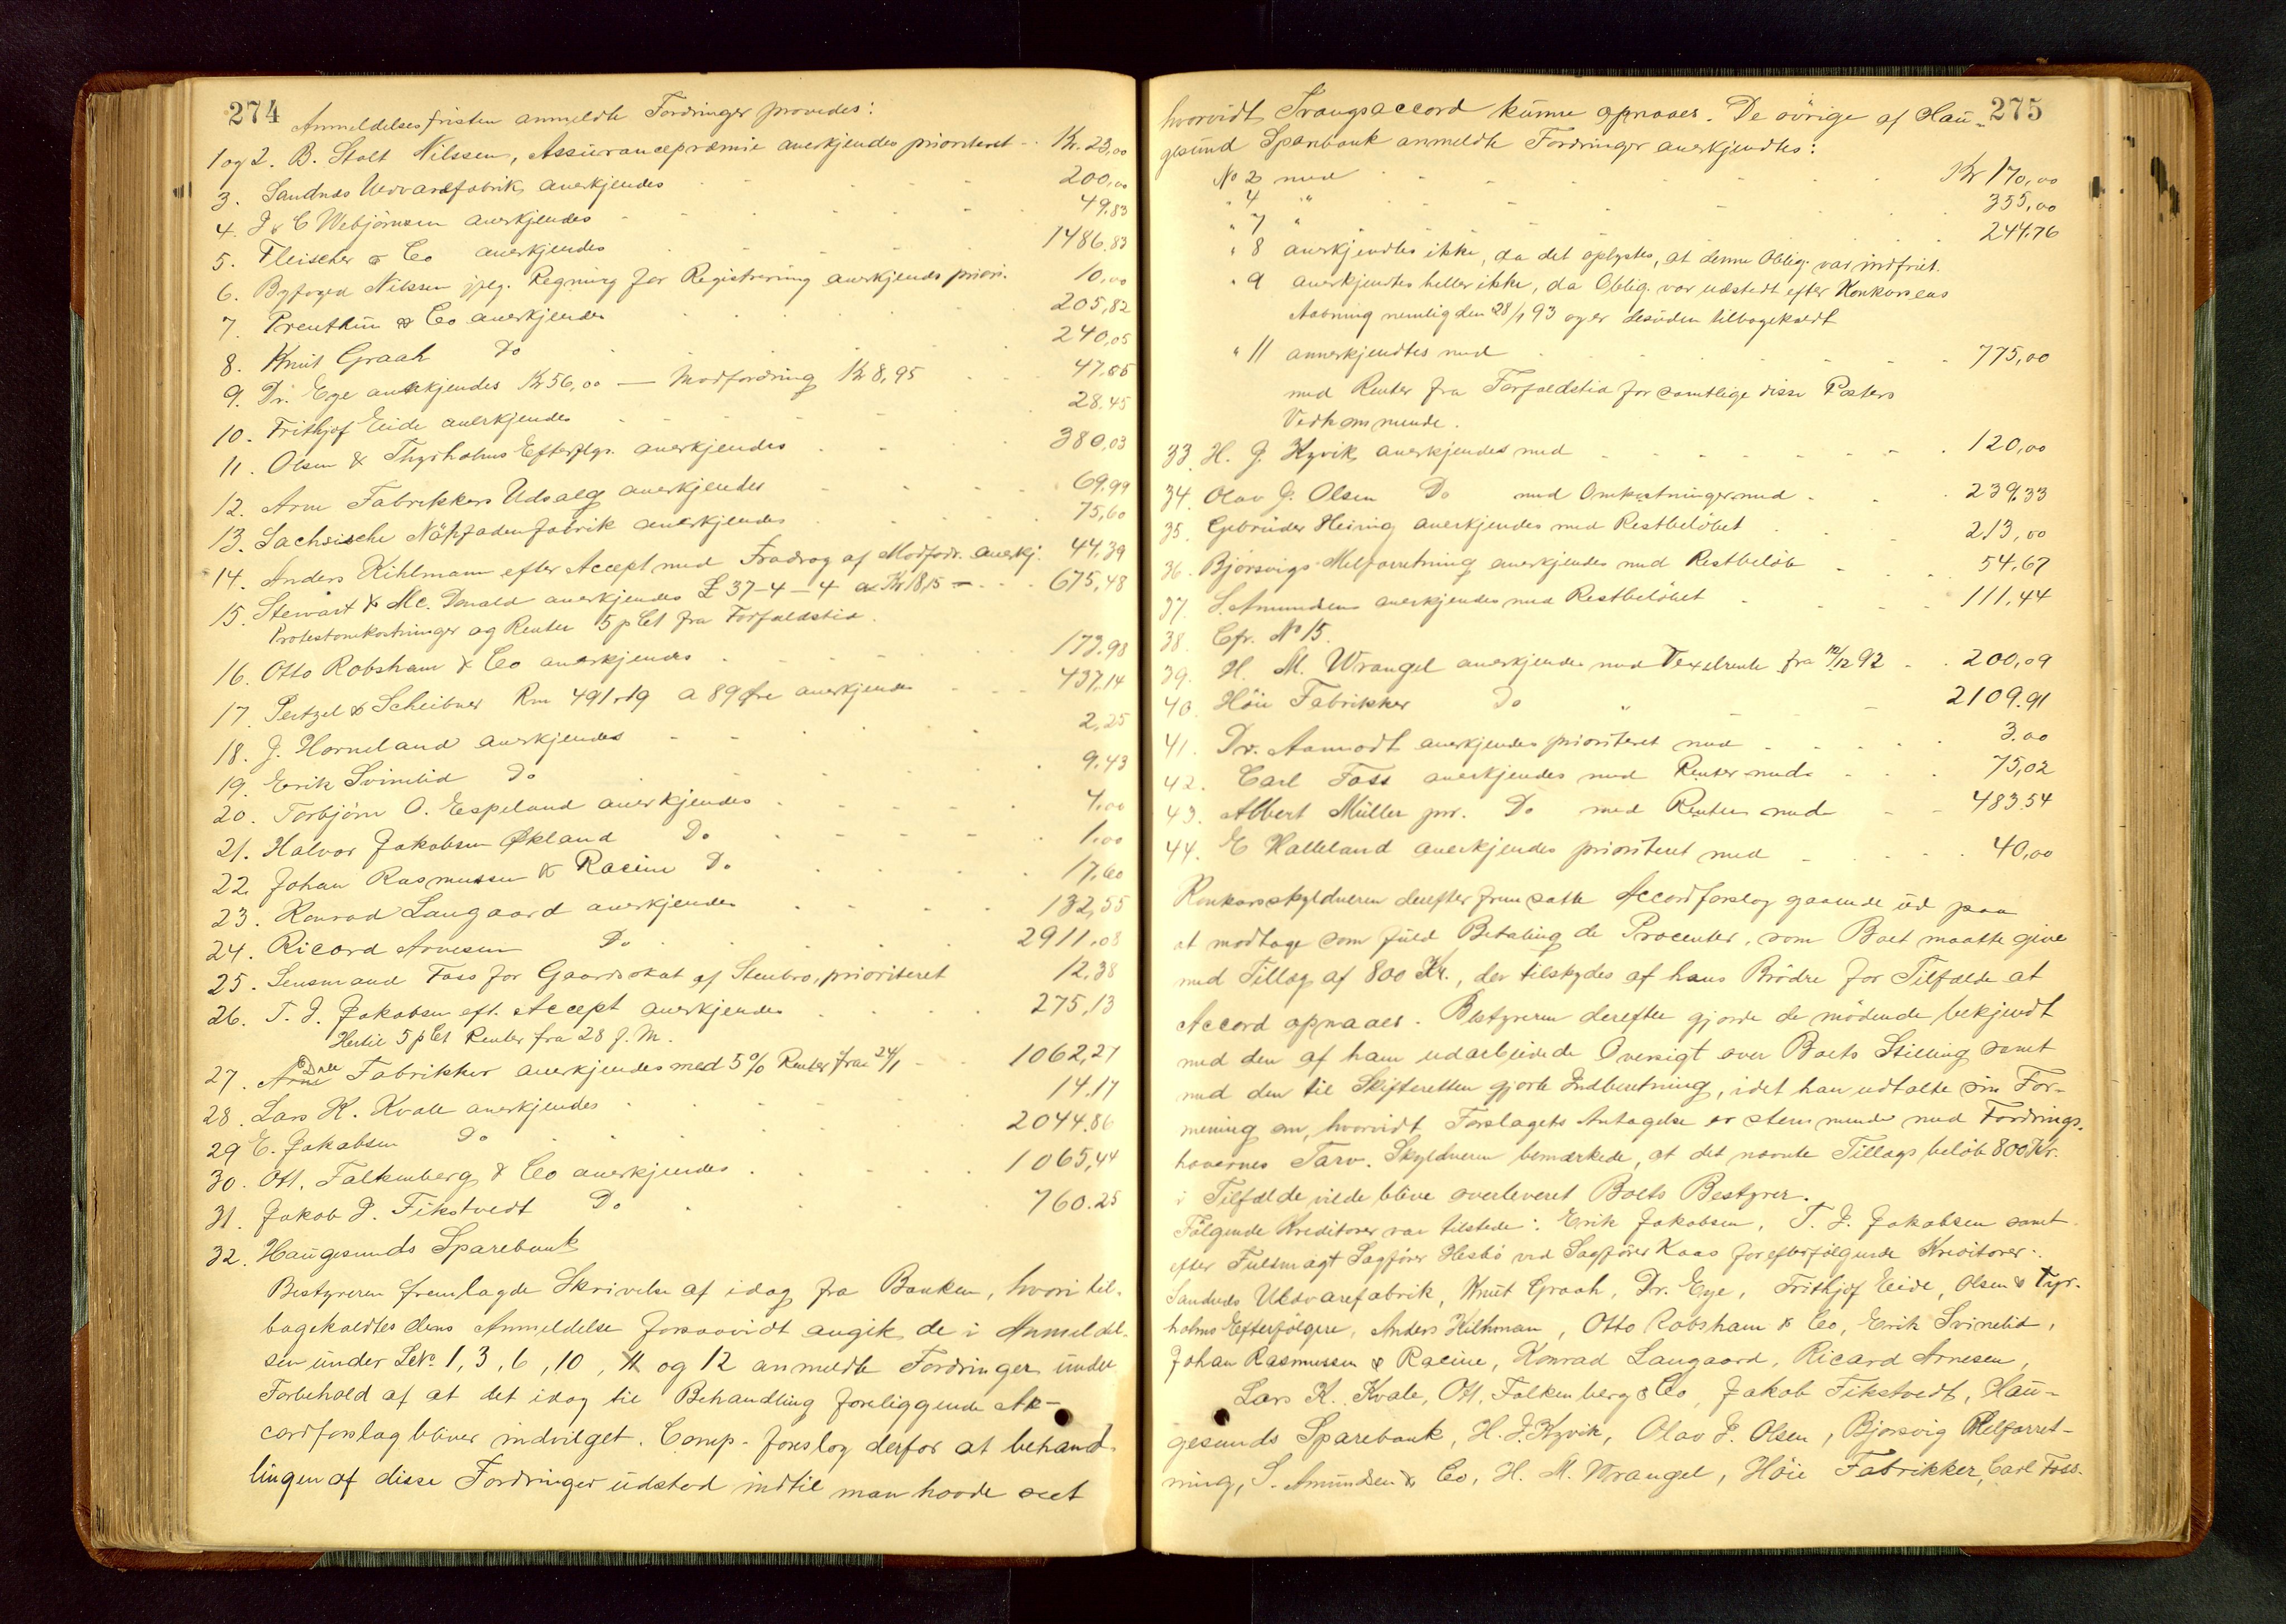 274
Anmeldelsesfristen anmeldte Fordringer prøvedes:
1 og 2. B. Stolt Nilssen, Assürancepræmie anerkjendes prioriteret - Kr. 23,00
3. Sandnæs Uldvarefabrik anerkjendes 200,00
4. J & C Webjörnsen anerkjendes 49.83
5. Fleischer & Co anerkjendes 1486.83
6. Byfoged Nilssen jflg. Regning for Registrering anerkjends priori. 10,00
7. Prenthün & Co anerkjendes 205,82
8. Knut Graah Do 240,05
9. Dr. Eye anerkjendes Kr 56,00 — Modfordring Kr 8,95 47.05
10. Frithjof Eide anerkjendes 28.45
11. Olsen & Thyrholms Efterflgr. anerkjendes 380,03
12. Arne Fabrikkers Udsalg anerkjendes 69.99
13. Sachsische Nähfadenfabrik anerkjendes 75,60
14. Anders Kihlmann efter Accept med Fradrag af Modfodr. anerkj. 44.39
15. Stewart & Mc. Donald anerkjendes £ 37-4-4 a Kr 18,15 - 675,48
Protestomkostninger og Renter 5 pCt fra Forfaldstid.
16. Otto Robsham & Co anerkjendes 173.98
17. Pertzel & Scheibner Rm 491.19 a 89 Øre anerkjendes 437.14
18. J. Horneland anerkjendes 2,25
19. Erik Svinelid Do 9.43
20. Torbjörn O. Espeland anerkjendes 4.00
21. Halvor Jakobsen Økland Do 1.00
22. Johan Rasmussen & Racine Do 17.60
23. Konrad Langaard anerkjendes 132,55
24. Ricard Arnesen Do 2911.08
25. Lensmand Foss for Gaardsskat af Stenbro, prioriteret 12,38
26. T. J. Jakobsen eft. Accept anerkjendes 275,13
Hertil 5 pCt Renter fra 28 f. M.
27. Dale Fabrikker anerkjendes med 5% Renter fra 24/1 - 1062,27
28. Lars K. Kvale anerkjendes 14.17
29 E. Jakobsen Do 2044.86
30. Ott. Falkenberg & Co anerkjendes 1065,44
31. Jakob J. Fikstvedt Do 760.25
32. Haugesunds Sparebank
Bestyreren fremlagde Skrivelse af idag fra Banken, hvori til-
bagekaldtes dens Anmeldelse forsaavidt angik de i Anmeldel-
sen ünder Litr. 1, 3, 6, 10, 11 og 12 anmeldte Fordringer ünder
Forbehold af at det idag til Behandling foreliggende Ak-
cordforslag bliver indvilget. Comp. foreslog derfor at behand-
lingen af disse Fordringer üdstod indtil man havde seet
275
hvorvidt Tvangsaccord künne opnaaes. De øvrige af Haü-
gesünd Sparebank anmeldte Fordringer anerkjendtes:
No 2 med Kr 170,00
" 4 " 355,00
" 7 " 244.76
" 8 anerkjendtes ikke, da det oplystes, at denne Oblig. var indfriet.
" 9 anerkjendtes heller ikke, da Oblig. var udstedt efter Konkursens
Aabning nemlig den 28/1 93 og er desüden tilbagekaldt
" 11 annerkjendtes med 775,00
med Renter fra Forfaldstid for samtlige disse Posters
Vedkommende.
33. H. J. Kyvik anerkjendes med 120,00
34. Olav J. Olsen Do med Omkostninger med 239,33
35. Gebrüder Heining anerkjendes med Restbelöbet 213,00
36. Björsvigs Melforretning anerkjendes med Restbelöb 54,67
37. S. Amundsen anerkjendes med Restbelöbet 111.44
38. Cfr. No 15.
39. H. M. Wrangel anerkjendes med Vexelrente fra 12/12 92 200,09
40. Höie Fabrikker Do " 2109.91
41. Dr. Aamodt anerkjendes prioriteret med 3.00
42. Carl Foss anerkjendes med Renter med 75,02
43. Albert Müller jnr. Do med Renter med 483.54
44. E Halleland anerkjendes prioriteret med 40,00
Konkursskyldneren derefter fremsatte Accordforslag gaaende üd paa
at modtage som füld Betaling de Procenter, som Boet maatte give
med Tillæg af 800 Kr., der tilskydes af hans Brödre for Tilfælde at
Accord opnaaes. Bestyreren derefter gjorde de mödende bekjendt
med den af ham udarbeidede Oversigt over Boets Stilling samt
med den til Skifteretten gjorte Indberetning, idet han udtalte sin For-
mening om, hvorvidt Forslagets Antagelse er stemmende med Fordrings-
havernes Tarv. Skyldneren bemærkede, at det nævnte Tillægsbelöb 800 Kr.
i Tilfælde vilde blive overleveret Boets Bestyrer.
Fölgende Kreditorer var tilstede: Erik Jakobsen, T. J. Jakobsen samt
efter Fuldmagt Sagförer Hesbö ved Sagförer Kaas for efterfölgende Kreditorer:
Sandnæs Uldvarefabrik, Knüt Graah, Dr. Eye, Frithjof Eide, Olsen & Tyr-
holms Efterfölgere, Anders Kilhman, Otto Robsham & Co, Erik Svinelid,
Johan Rasmussen & Racine, Konrad Langaard, Ricard Arnesen,
Lars K. Kvale, Ott. Falkenberg & Co, Jakob Fikstvedt, Haü-
gesunds Sparebank, H. J. Kyvik, Olav J. Olsen, Bjorsvig Melforret-
ning, S. Amündsen & Co, H. M. Wrangel, Höie Fabrikker, Carl Foss.